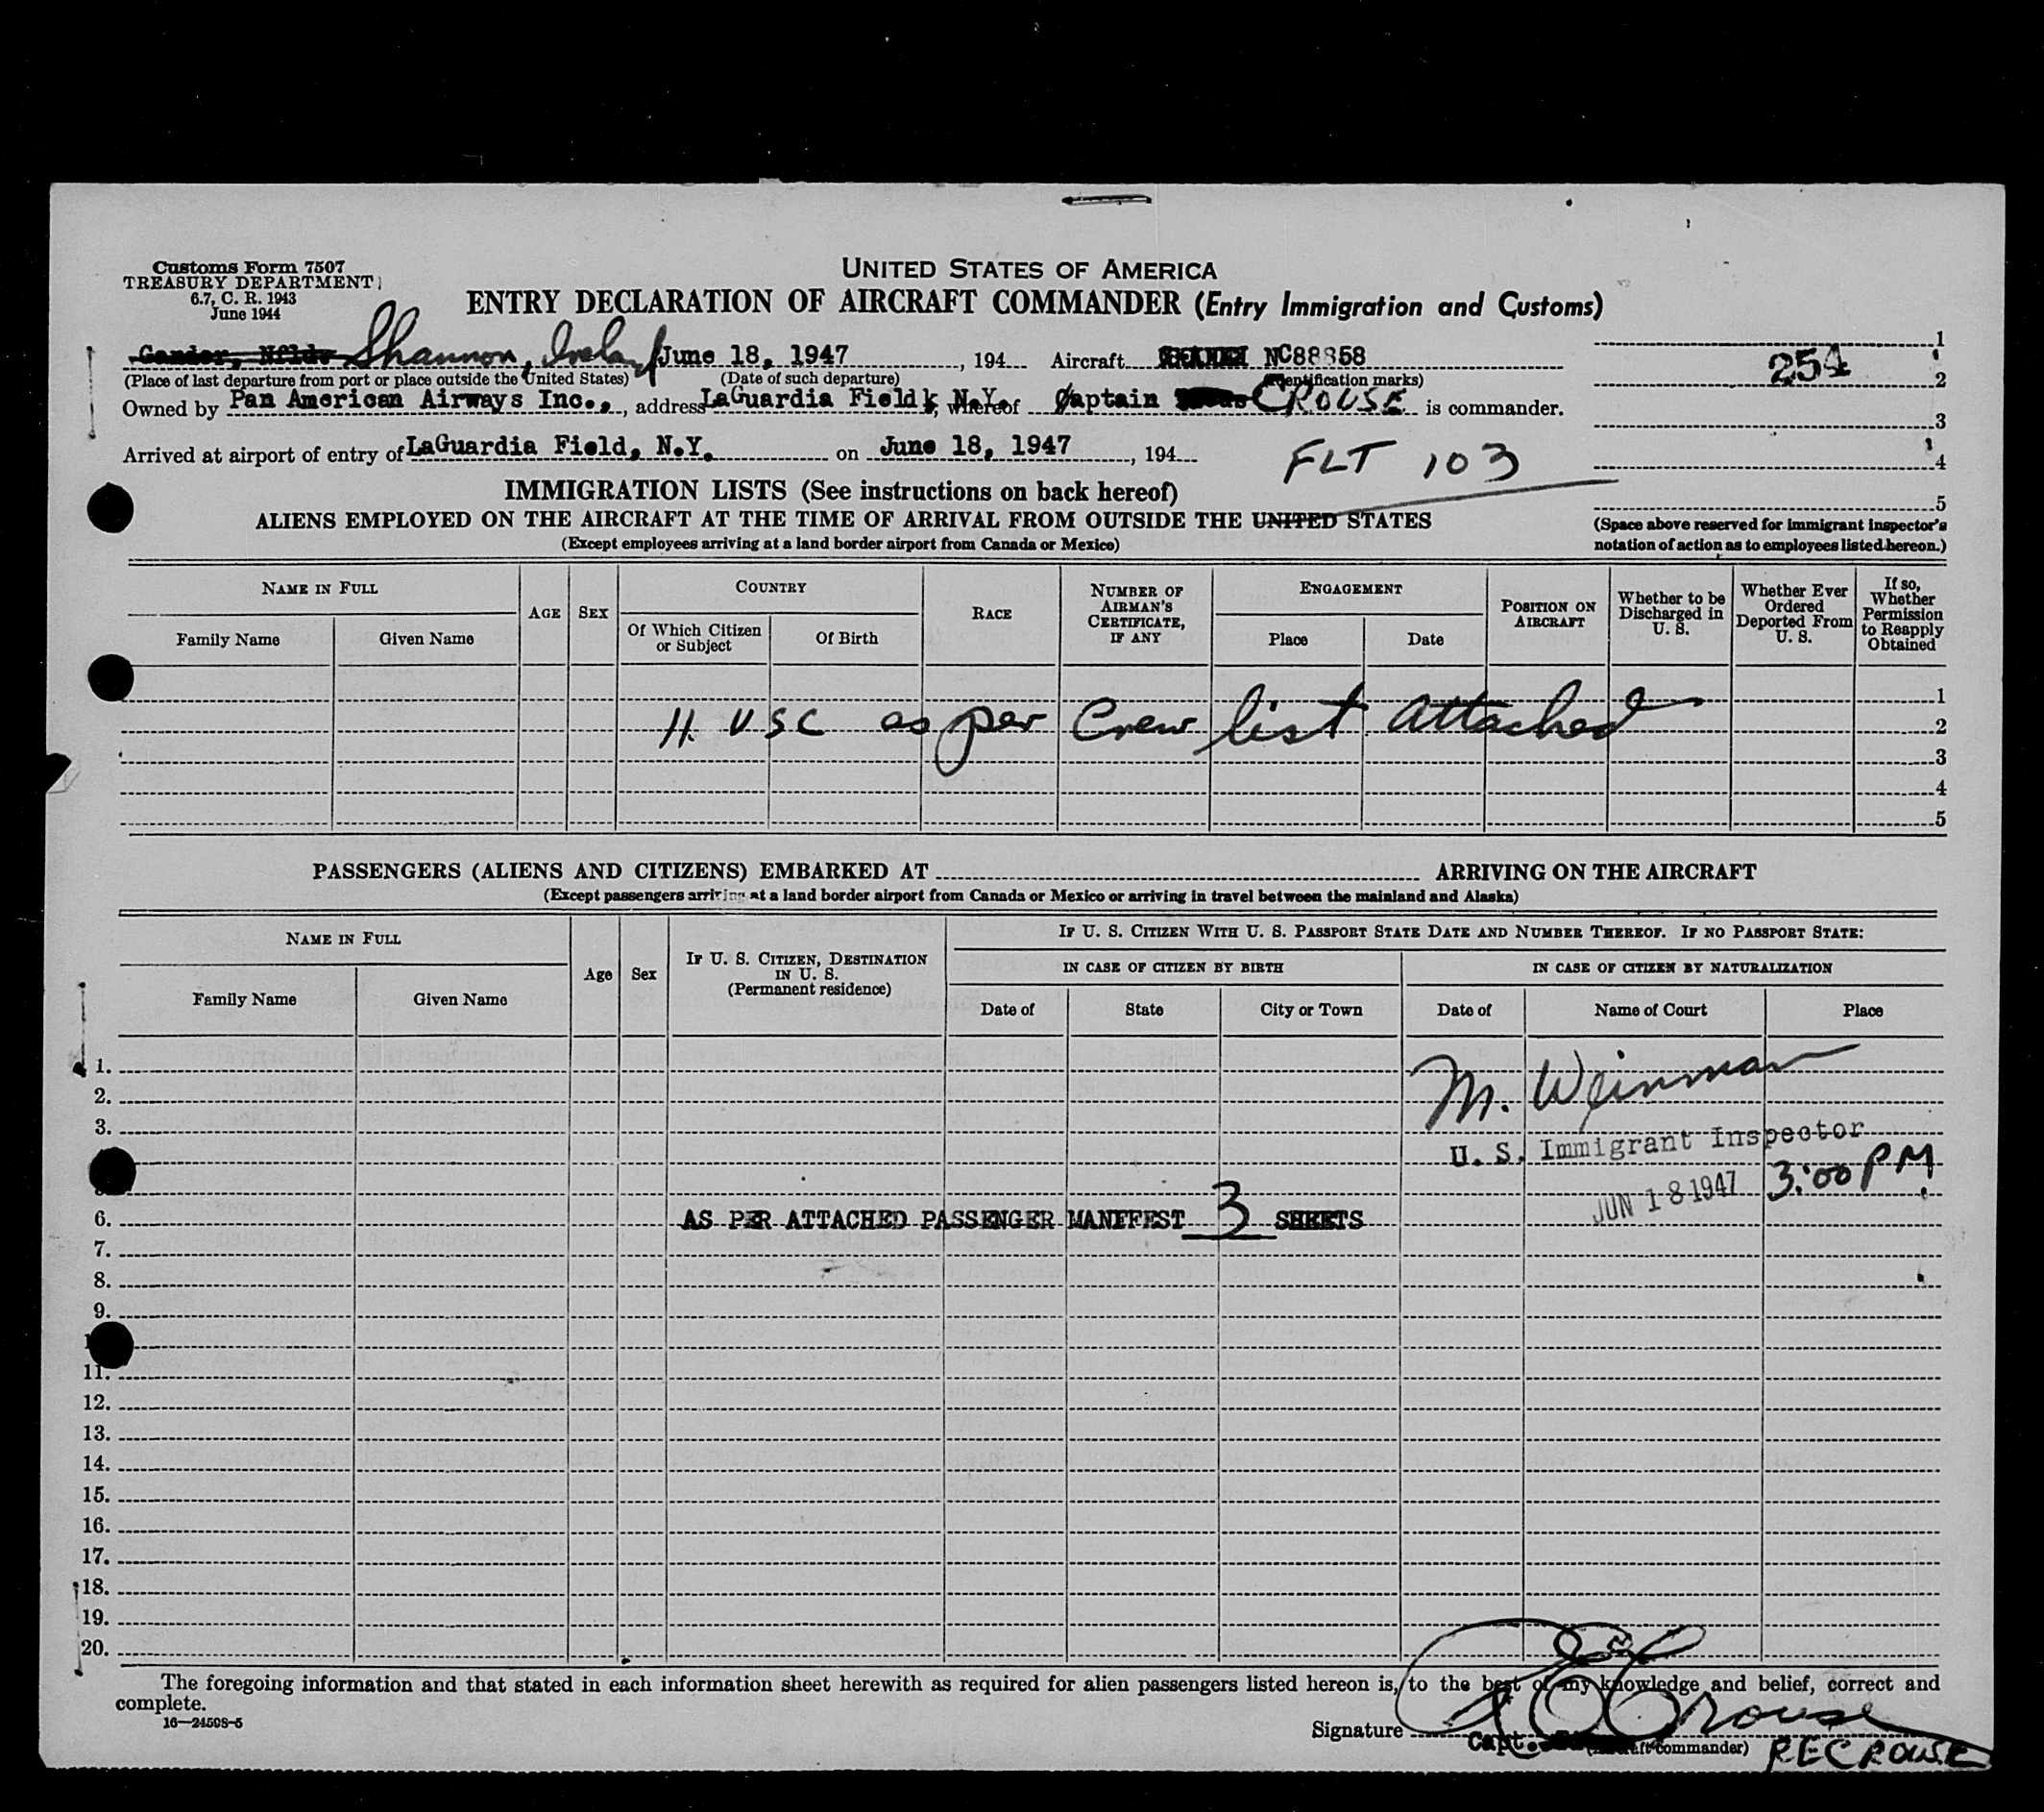 Customs Form 7507
TREASURY DEPARTMENT
6.7, C. R. 1943
June 1944
UNITED STATES OF AMERICA
ENTRY DECLARATION OF AIRCRAFT COMMANDER (Entry Immigration and Customs)
Gander, Nfld. Shannon, Ireland June 18, 1947, 194 Aircraft NC88858
(Place of last departure from port or place outside the United States) (Date of such departure) (Identification marks)
Owned by Pan American Airways Inc., address LaGuardia Field, N.Y. whereof Captain CROUSE is commander.
Arrived at airport of entry of LaGuardia Field, N.Y. on June 18, 1947, 194
FLT 103
1
254
2
3
4
5
(Space above reserved for immigrant inspector's notation of action as to employees listed hereon.)
IMMIGRATION LISTS (See instructions on back hereof)
ALIENS EMPLOYED ON THE AIRCRAFT AT THE TIME OF ARRIVAL FROM OUTSIDE THE UNITED STATES
(Except employees arriving at a land border airport from Canada or Mexico)
NAME IN FULL
Family Name Given Name
AGE SEX
COUNTRY
Of Which Citizen or Subject Of Birth
RACE
NUMBER OF AIRMAN'S CERTIFICATE, IF ANY
ENGAGEMENT
Place Date
POSITION ON AIRCRAFT
Whether to be Discharged in U. S.
Whether Ever Ordered Deported From U. S.
If so, Whether Permission to Reapply Obtained
1
11. USC as per Crew list attached
2
3
4
5
PASSENGERS (ALIENS AND CITIZENS) EMBARKED AT ARRIVING ON THE AIRCRAFT
(Except passengers arriving at a land border airport from Canada or Mexico or arriving in travel between the mainland and Alaska)
NAME IN FULL
Family Name Given Name
Age Sex
IF U. S. CITIZEN, DESTINATION IN U. S.
(Permanent residence)
IF U. S. CITIZEN WITH U. S. PASSPORT STATE DATE AND NUMBER THEREOF. IF NO PASSPORT STATE:
IN CASE OF CITIZEN BY BIRTH IN CASE OF CITIZEN BY NATURALIZATION
Date of State City or Town Date of Name of Court Place
1.
2.
3.
M. Weinman
U. S. Immigrant Inspector
JUN 18 1947 3:00 PM
6. AS PER ATTACHED PASSENGER MANIFEST 3 SHEETS
7.
8.
9.
11.
12.
13.
14.
15.
16.
17.
18.
19.
20.
The foregoing information and that stated in each information sheet herewith as required for alien passengers listed hereon is, to the best of my knowledge and belief, correct and
complete.
16—24598-5
Signature RECrouse
Capt. (Aircraft commander) RECROUSE